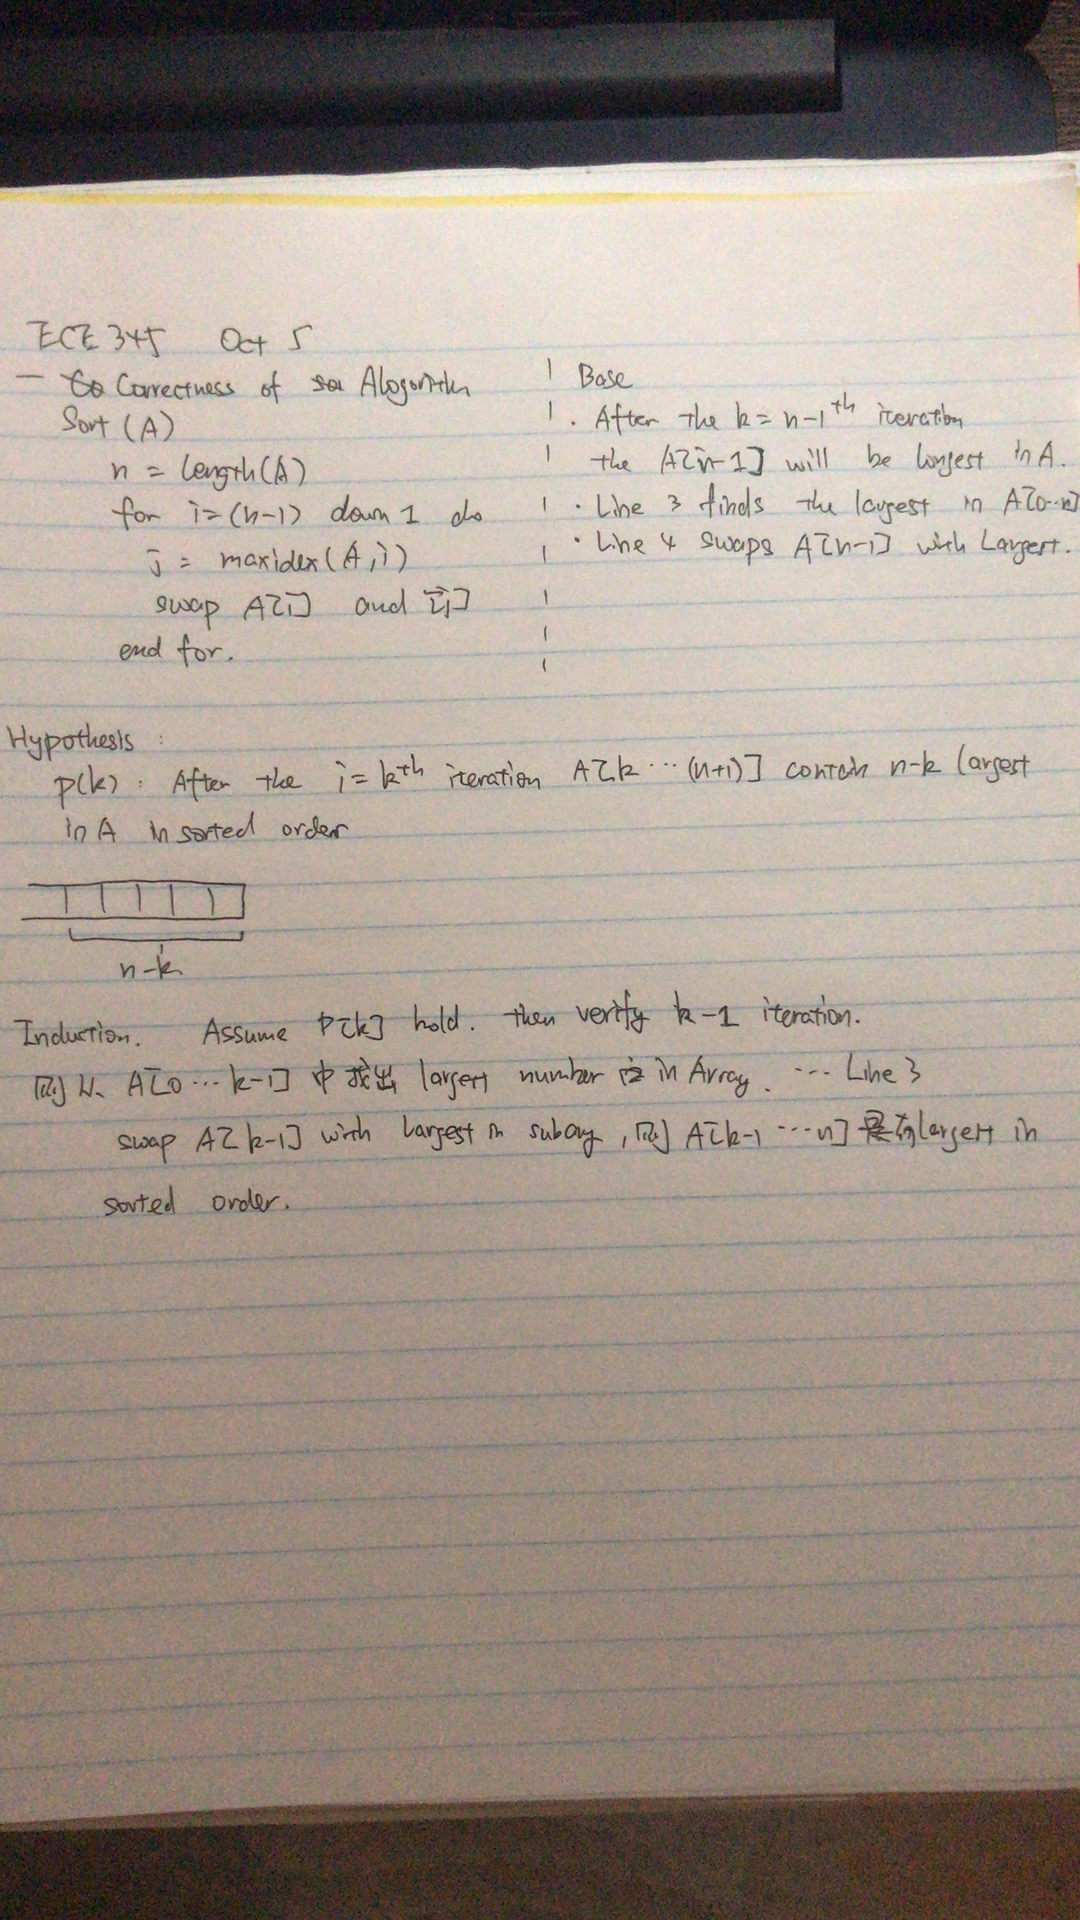 ECE 345 Oct 5
- Correctness of Alogorithm
Sort (A)
n = length(A)
for i=(n-1) down 1 do
j = maxidex(A,i)
swap A[i] and [j]
end for.
Base
. After the k = n-1th iteration
the A[n-1] will be largest in A.
· Line 3 finds the largest in A[0--n]
· Line 4 swaps A[n-1] with Largest.
Hypothesis :
p(k) : After the i=kth iteration A[k ... (n+1)] contain n-k largest
in A in sorted order
n-k
Induction. Assume P[k] hold. then verify k-1 iteration.
则从 A[0...k-1] 中找出 largest number in Array. ... Line 3
swap A[k-1] with largest in subary, 则 A[k-1 ...n] largest in
sorted order.